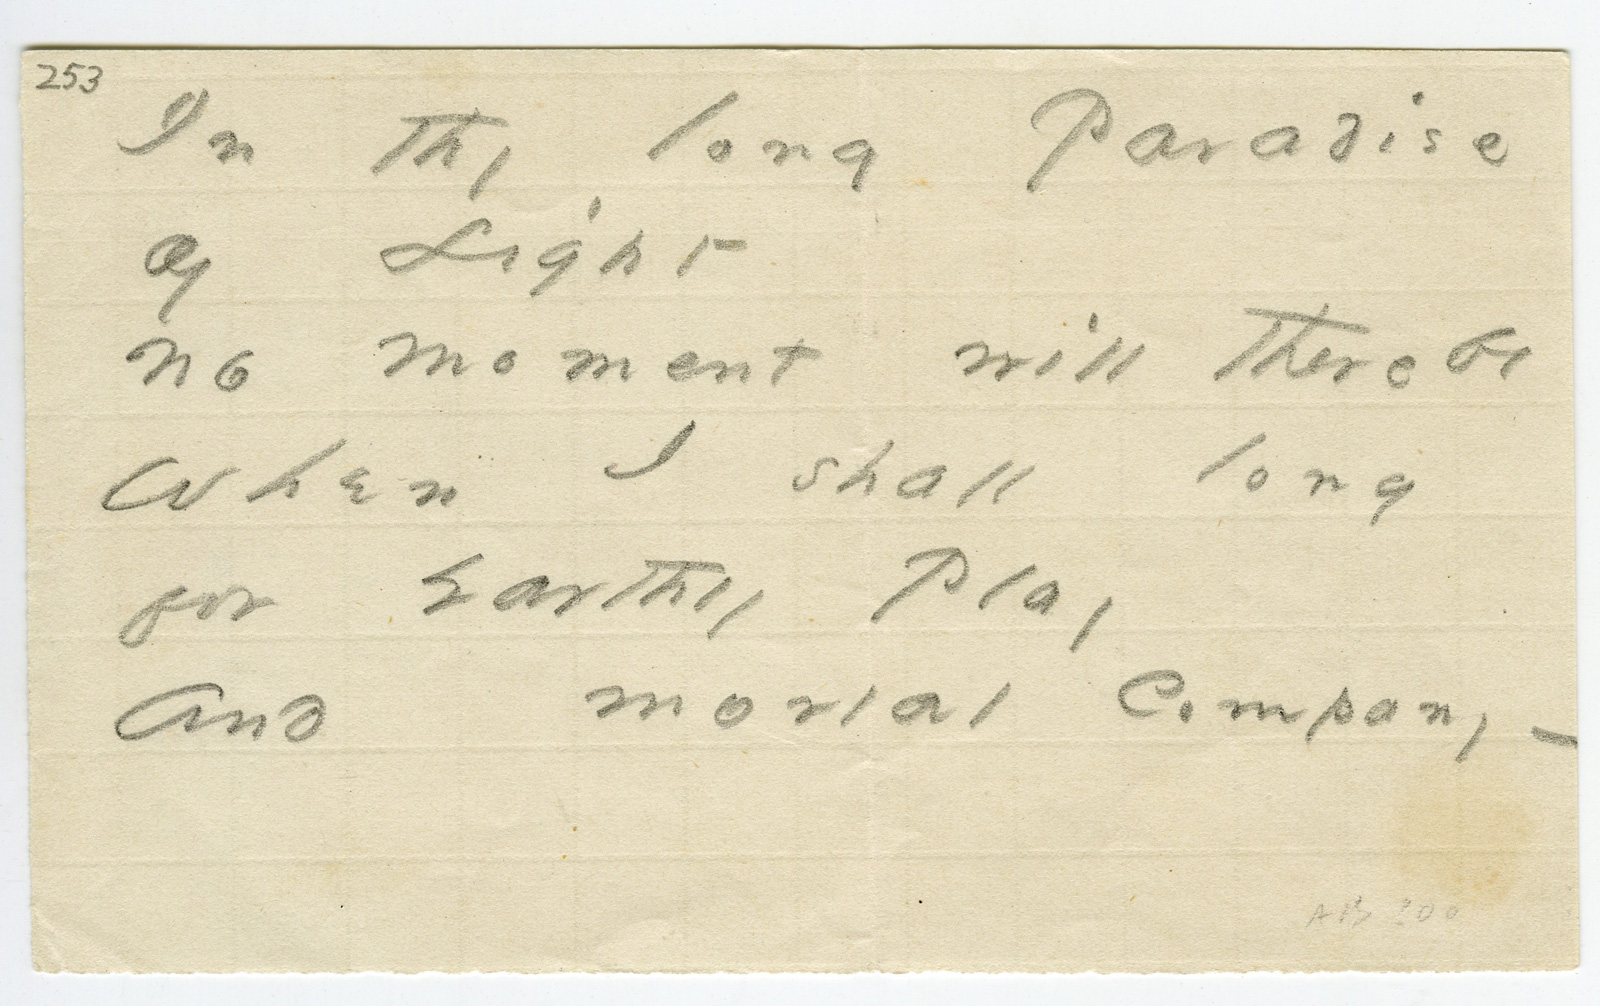 253
In thy long Paradise
of Light
no moment will there be
When I shall long
for Earthly Play
And mortal Company –